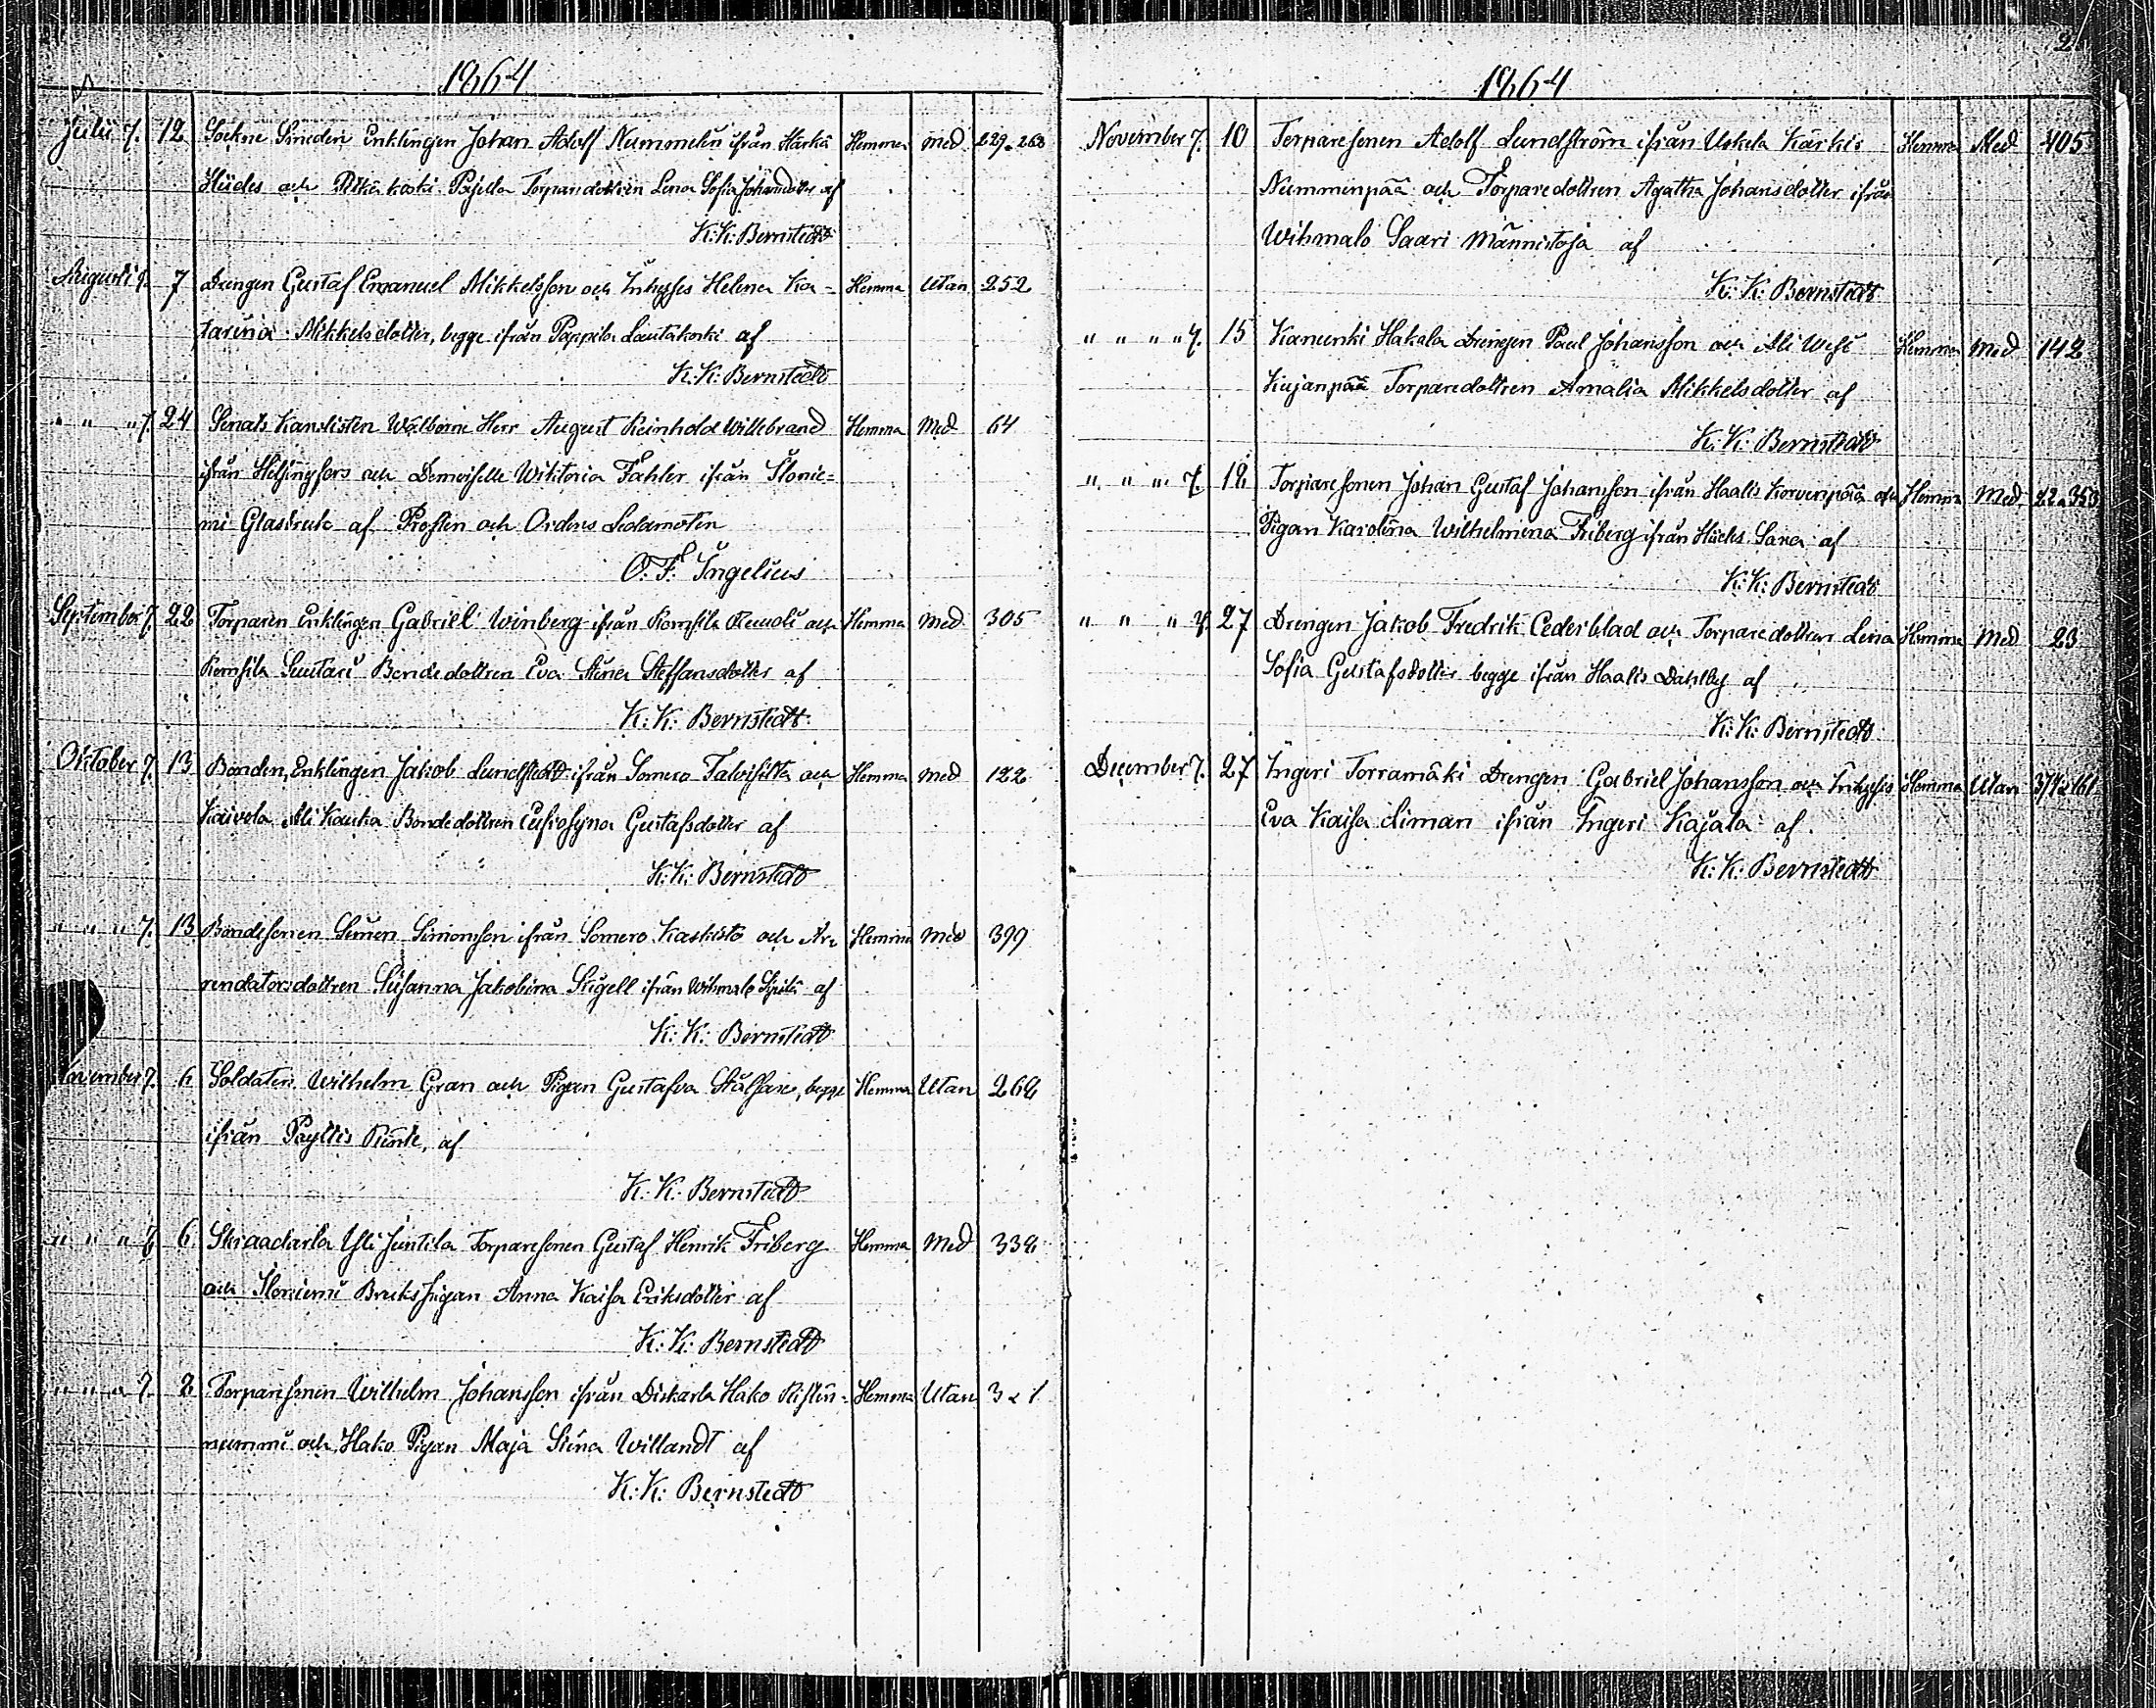 1864
Julii 7. 12 Sockne Smeden Enklingen Johan Adolf Nummelin ifrån Härkä Hemma Med 229.268
Hiides och Pitkäkoski Pajula Torparedottren Lena Sofia Johansdotter af
K: K: Bernstedt
Augusti 7. 7 Drengen Gustaf Emanuel Mikkelsson och Inhyses Helena Ka- Hemma Utan 252
tarina Mikkelsdotter, begge ifrån Pappila Lautakoski af
K: K: Bernstedt
" " " 7. 24 Senats Kanslisten Welborne Herr August Reinhold Willebrand Hemma Med 64
ifrån Helsingfors och Demoiselle Wiktoria Fahler ifrån Ilonie=
mi Glasbruk af Prosten och Ordens Ledamoten
O. F. Ingelius
September 7. 22 Torparen Enklingen Gabriel Winberg ifrån och Hemma Med 305
Suutari Bondedottren Eva Stina Steffansdotter af
K: K: Bernstedt
Oktober 7. 13 Bonden, Enklingen Jakob Lundstedt ifrån Somero Talvisilta och Hemma Med 122
Kaivola Ali Kauha Bondedottren Eufrosyna Gustafsdotter af
K: K: Bernstedt
" " " 7. 13 Bondesonen Simon Simonsson ifrån Somero Kaskisto och Ar= Hemma Med 399
rendatorsdottren Susanna Jakobina Sigell ifrån Wihmalo Sipilä af
K: K: Bernstedt
November 7. 6 Soldaten Wilhelm Gran och Pigan Gustafva begge Hemma Utan 268
ifrån Payltis af
K: K: Bernstedt
" " " 7. 6 Skraadarla Yli Juntila Torparesonen Gustaf Henrik Friberg Hemma Med 338
och Iloniemi Brukspigan Anna Kaisa Eriksdotter af
K: K: Bernstedt
" " " 7. 8 Torparesonen Wilhelm Johansson ifrån Diskarla Hako Ristin= Hemma Utan 321
nummi och Hako Pigan Maja Stina Willandt af
K: K: Bernstedt
1864
November 7. 10 Torparesonen Adolf Lundström ifrån Uskela Kärkis Hemma Med 405
Nummenpää och Torparedottren Agatha Johansdotter ifrån
Wihmalo Saari Männistöjä af
K: K: Bernstedt
" " " " 7. 15 Kanunki Hakala Drengen Paul Johansson och Ali West Hemma Med 142
Kujanpää Torparedottren Amalia Mikkelsdotter af
K: K: Bernstedt
" " " 7. 18 Torparesonen Johan Gustaf Johansson ifrån Haalis Korvenpää och Hemma Med 22.353
Pigan Karolina Wilhelmina Friberg ifrån Hiides af
K: K: Bernstedt
" " " 7. 27 Drengen Jakob Fredrik Cederblad och Torparedottren Lena Hemma Med 23
Sofia Gustafsdotter begge ifrån Haalis Dahlby af
K: K: Bernstedt
December 7. 27 Ingeri Torramäki Drengen Gabriel Johansson och Inhyses Hemma Utan
Eva Kaisa Liman ifrån Ingeri Kajala af
K: K: Bernstedt